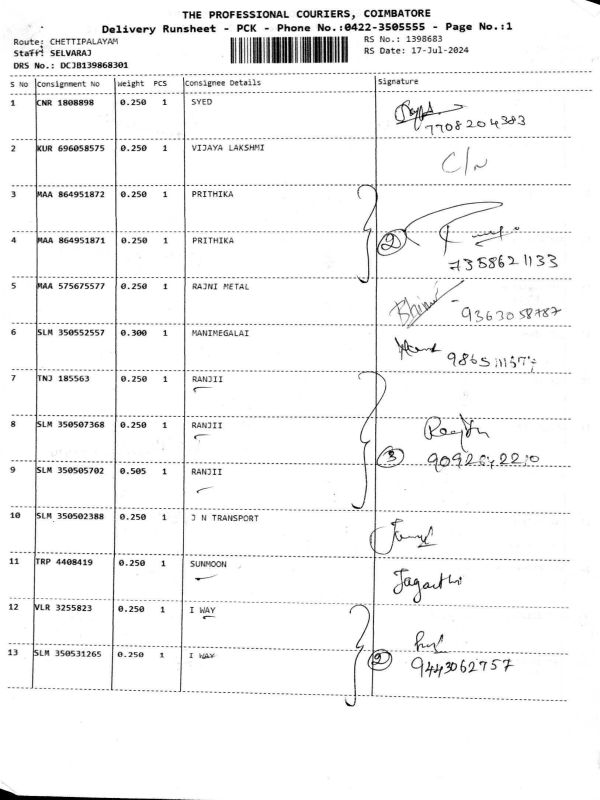 THE PROFESSIONAL COURIERS, COIMBATORE
Delivery Runsheet - PCK - Phone No.:0422-3505555 - Page No.:1
Route: CHETTIPALAYAM RS No.: 1398683
Staff: SELVARAJ RS Date: 17-Jul-2024
DRS No.: DCJB139868301
S No Consignment No Weight PCS Consignee Details Signature
1 CNR 1808898 0.250 1 SYED
7708204383
2 KUR 696058575 0.250 1 VIJAYA LAKSHMI C/n
3 MAA 864951872 0.250 1 PRITHIKA
4 MAA 864951871 0.250 1 PRITHIKA 2
7358621133
5 MAA 575675577 0.250 1 RAJNI METAL
9363058787
6 SLM 350552557 0.300 1 MANIMEGALAI
7 TNJ 185563 0.250 1 RANJII
8 SLM 350507368 0.250 1 RANJII
9 SLM 350505702 0.505 1 RANJII 3
10 SLM 350502388 0.250 1 J N TRANSPORT
11 TRP 4408419 0.250 1 SUNMOON
12 VLR 3255823 0.250 1 I WAY
13 SLM 350531265 0.250 1 I WAY 2
9443062757